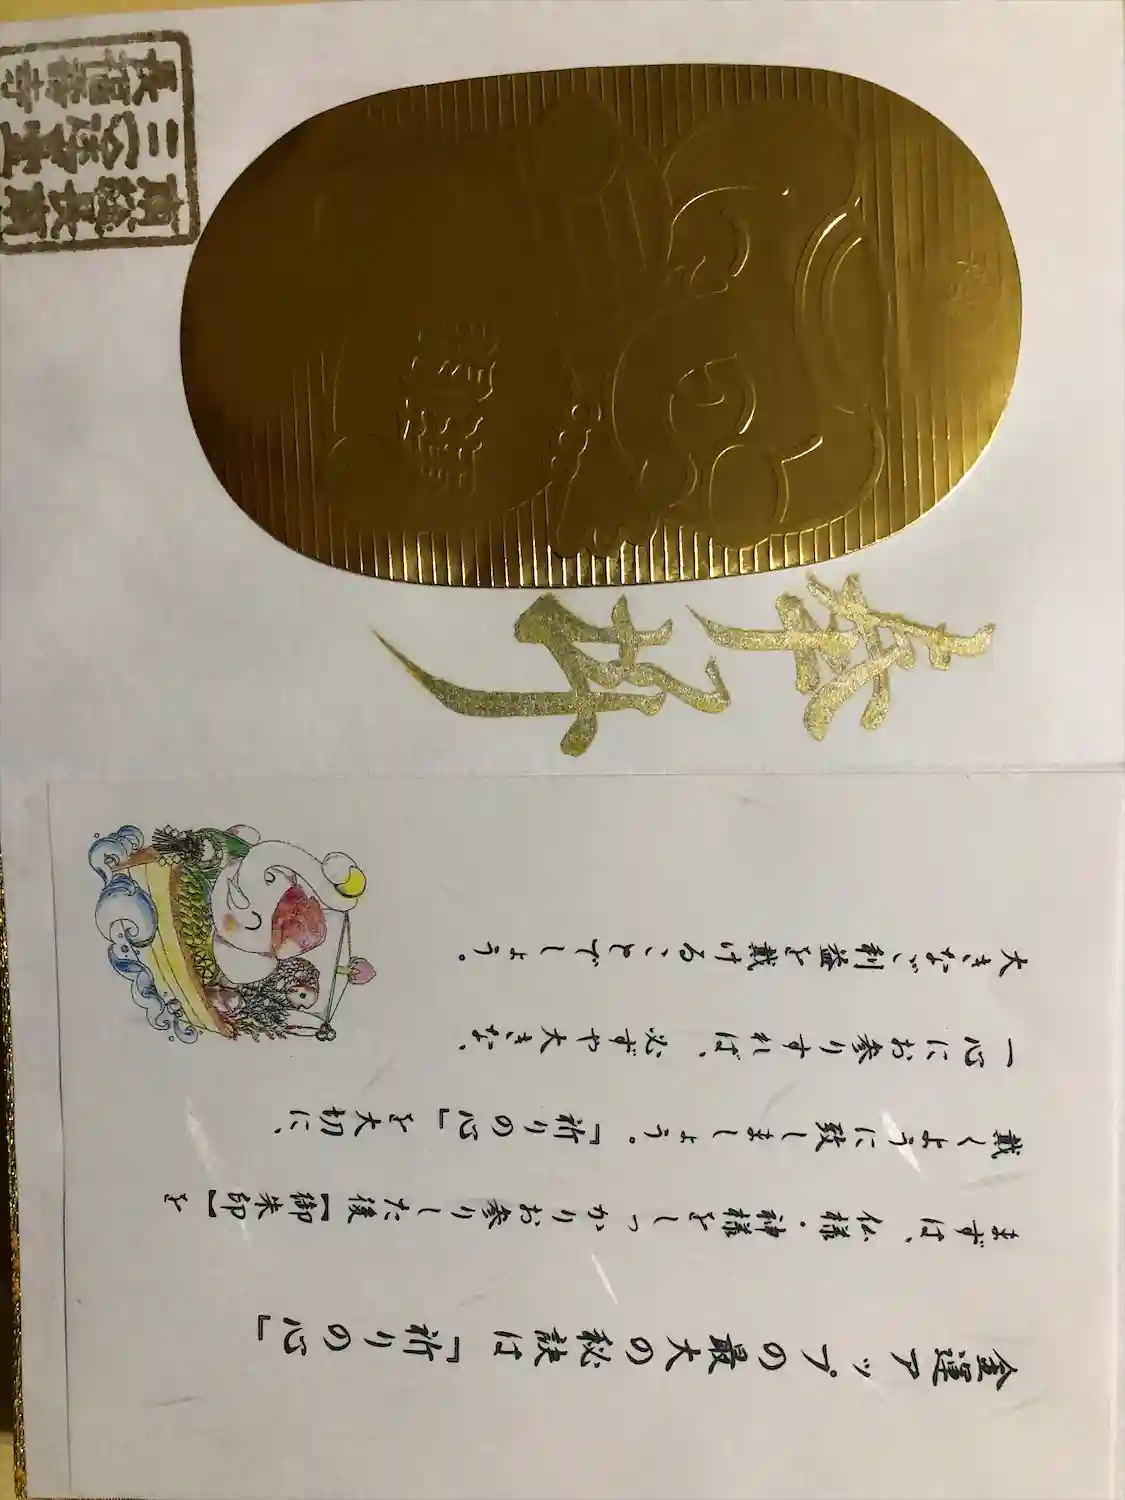 金運アップの最大の秘訣は「祈りの心」
まずは、仏様・神様をしっかりお参りした後【御朱印】を
戴くように致しましょう。「祈りの心」を大切に、
一心にお参りすれば、必ずや大きな、
大きなご利益を戴けることでしょう。
奉拝
三途台
長福壽寺